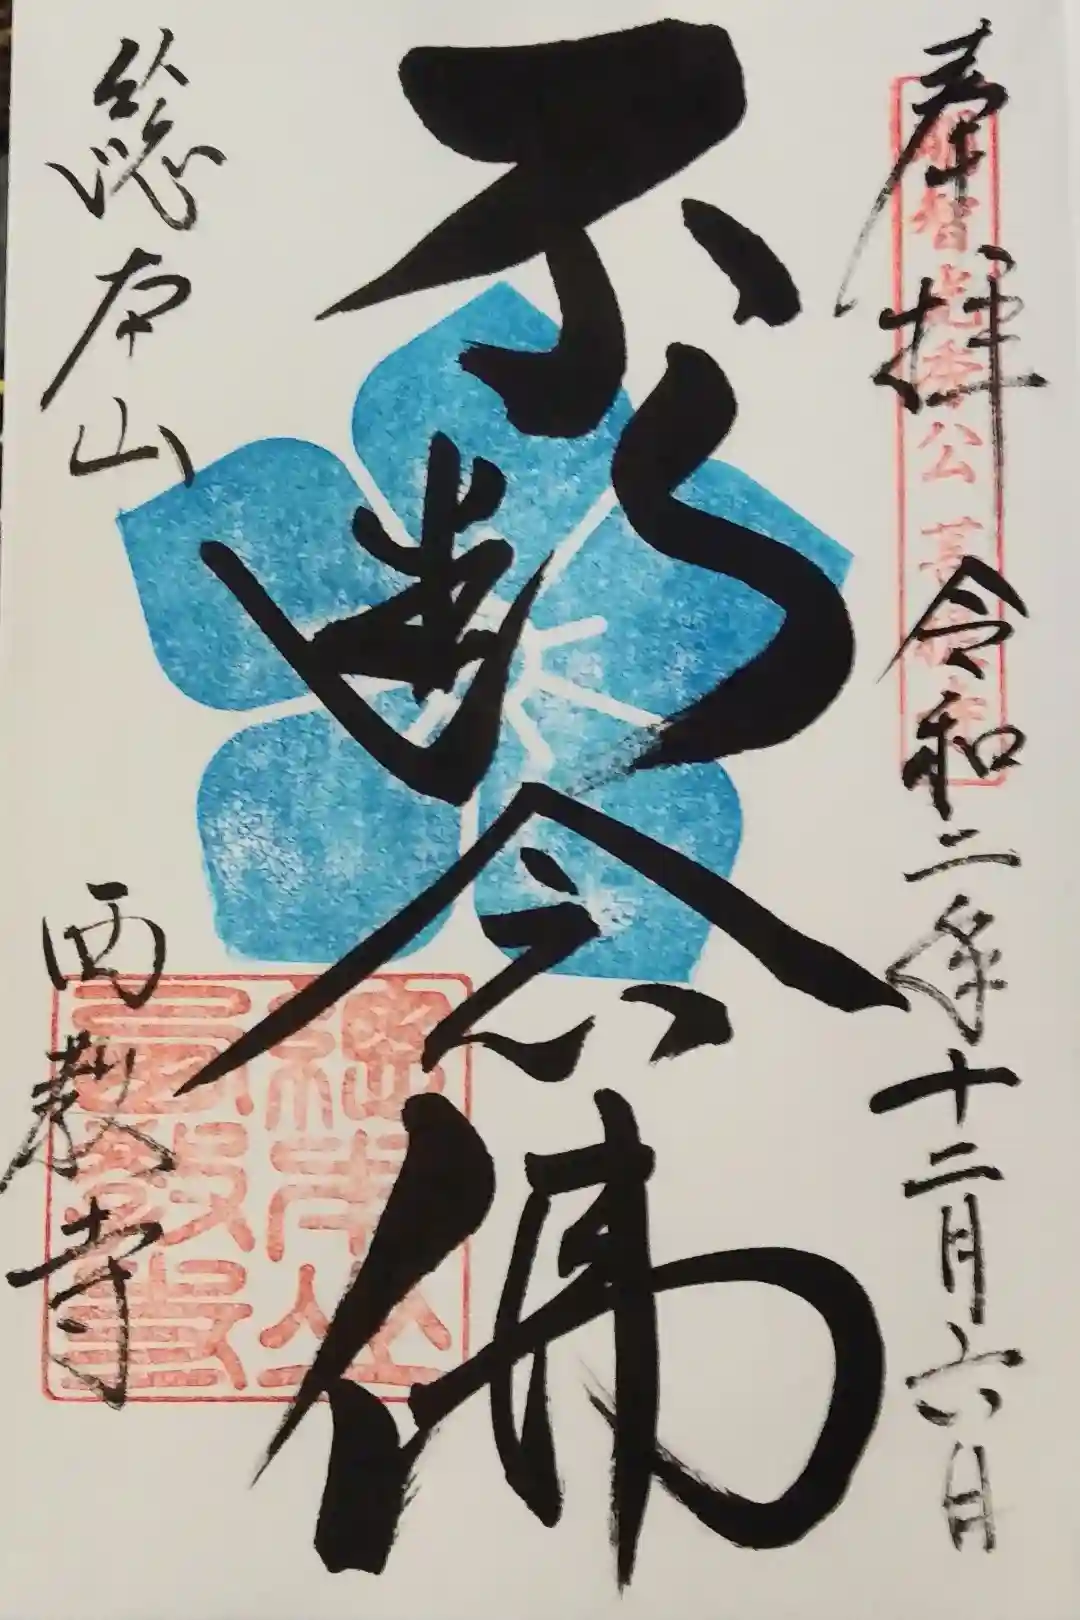 奉拝
令和二年十二月六日
明智光秀公菩提寺
不断念佛
總本山
西教寺
總本山西教寺